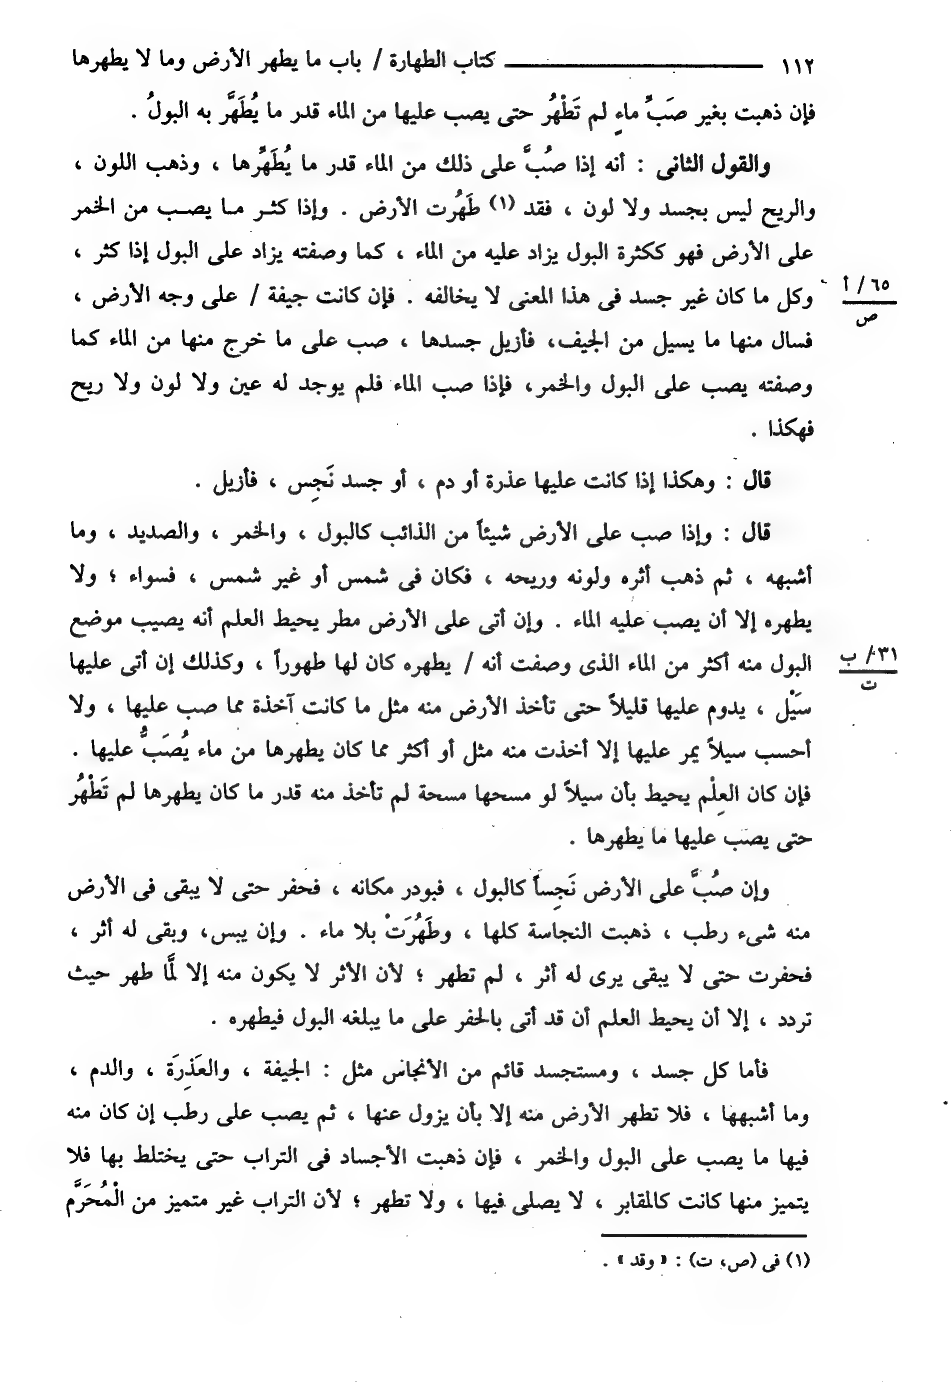 ١١٢ ــــــــــ كتاب الطهارة / باب ما يطهر الأرض وما لا يطهرها
فإن ذهبت بغير صَبِّ ماءٍ لم تَطْهُر حتى يصب عليها من الماء قدر ما يُطَهَّر به البولُ .
والقول الثانى : أنه إذا صُبَّ على ذلك من الماء قدر ما يُطَهِّرها ، وذهب اللون ،
والريح ليس بجسد ولا لون ، فقد (١) طَهُرت الأرض . وإذا كثر ما يصب من الخمر
على الأرض فهو ككثرة البول يزاد عليه من الماء ، كما وصفته يزاد على البول إذا كثر ،
وكل ما كان غير جسد فى هذا المعنى لا يخالفه . فإن كانت جيفة / على وجه الأرض ،
٦٥/ أ
ص
فسال منها ما يسيل من الجيف، فأزيل جسدها ، صب على ما خرج منها من الماء كما
وصفته يصب على البول والخمر، فإذا صب الماء فلم يوجد له عين ولا لون ولا ريح
فهكذا .
قال : وهكذا إذا كانت عليها عذرة أو دم ، أو جسد نَجِس ، فأزيل .
قال : وإذا صب على الأرض شيئاً من الذائب كالبول ، والخمر ، والصديد ، وما
أشبهه ، ثم ذهب أثره ولونه وريحه ، فكان فى شمس أو غير شمس ، فسواء ؛ ولا
يطهره إلا أن يصب عليه الماء . وإن أتى على الأرض مطر يحيط العلم أنه يصيب موضع
البول منه أكثر من الماء الذى وصفت أنه / يطهره كان لها طهوراً ، وكذلك إن أتى عليها
٣١/ ب
ت
سَيْل ، يدوم عليها قليلاً حتى تأخذ الأرض منه مثل ما كانت آخذة مما صب عليها ، ولا
أحسب سيلاً يمر عليها إلا أخذت منه مثل أو أكثر مما كان يطهرها من ماء يُصَبُّ عليها .
فإن كان العِلْم يحيط بأن سيلاً لو مسحها مسحة لم تأخذ منه قدر ما كان يطهرها لم تَطْهُر
حتى يصب عليها ما يطهرها .
وإن صُبَّ على الأرض نَجِساً كالبول ، فبودر مكانه ، فحفر حتى لا يبقى فى الأرض
منه شىء رطب ، ذهبت النجاسة كلها ، وطَهُرَتْ بلا ماء . وإن يبس، وبقى له أثر ،
فحفرت حتى لا يبقى يرى له أثر ، لم تطهر ؛ لأن الأثر لا يكون منه إلا لَمَّا طهر حيث
تردد ، إلا أن يحيط العلم أن قد أتى بالحفر على ما يبلغه البول فيطهره .
فأما كل جسد ، ومستجسد قائم من الأنجاس مثل : الجيفة ، والعَذِرَة ، والدم ،
وما أشبهها ، فلا تطهر الأرض منه إلا بأن يزول عنها ، ثم يصب على رطب إن كان منه
فيها ما يصب على البول والخمر ، فإن ذهبت الأجساد فى التراب حتى يختلط بها فلا
يتميز منها كانت كالمقابر ، لا يصلى فيها ، ولا تطهر ؛ لأن التراب غير متميز من الْمُحَرَّم
(١) فى (ص، ت) : « وقد » .